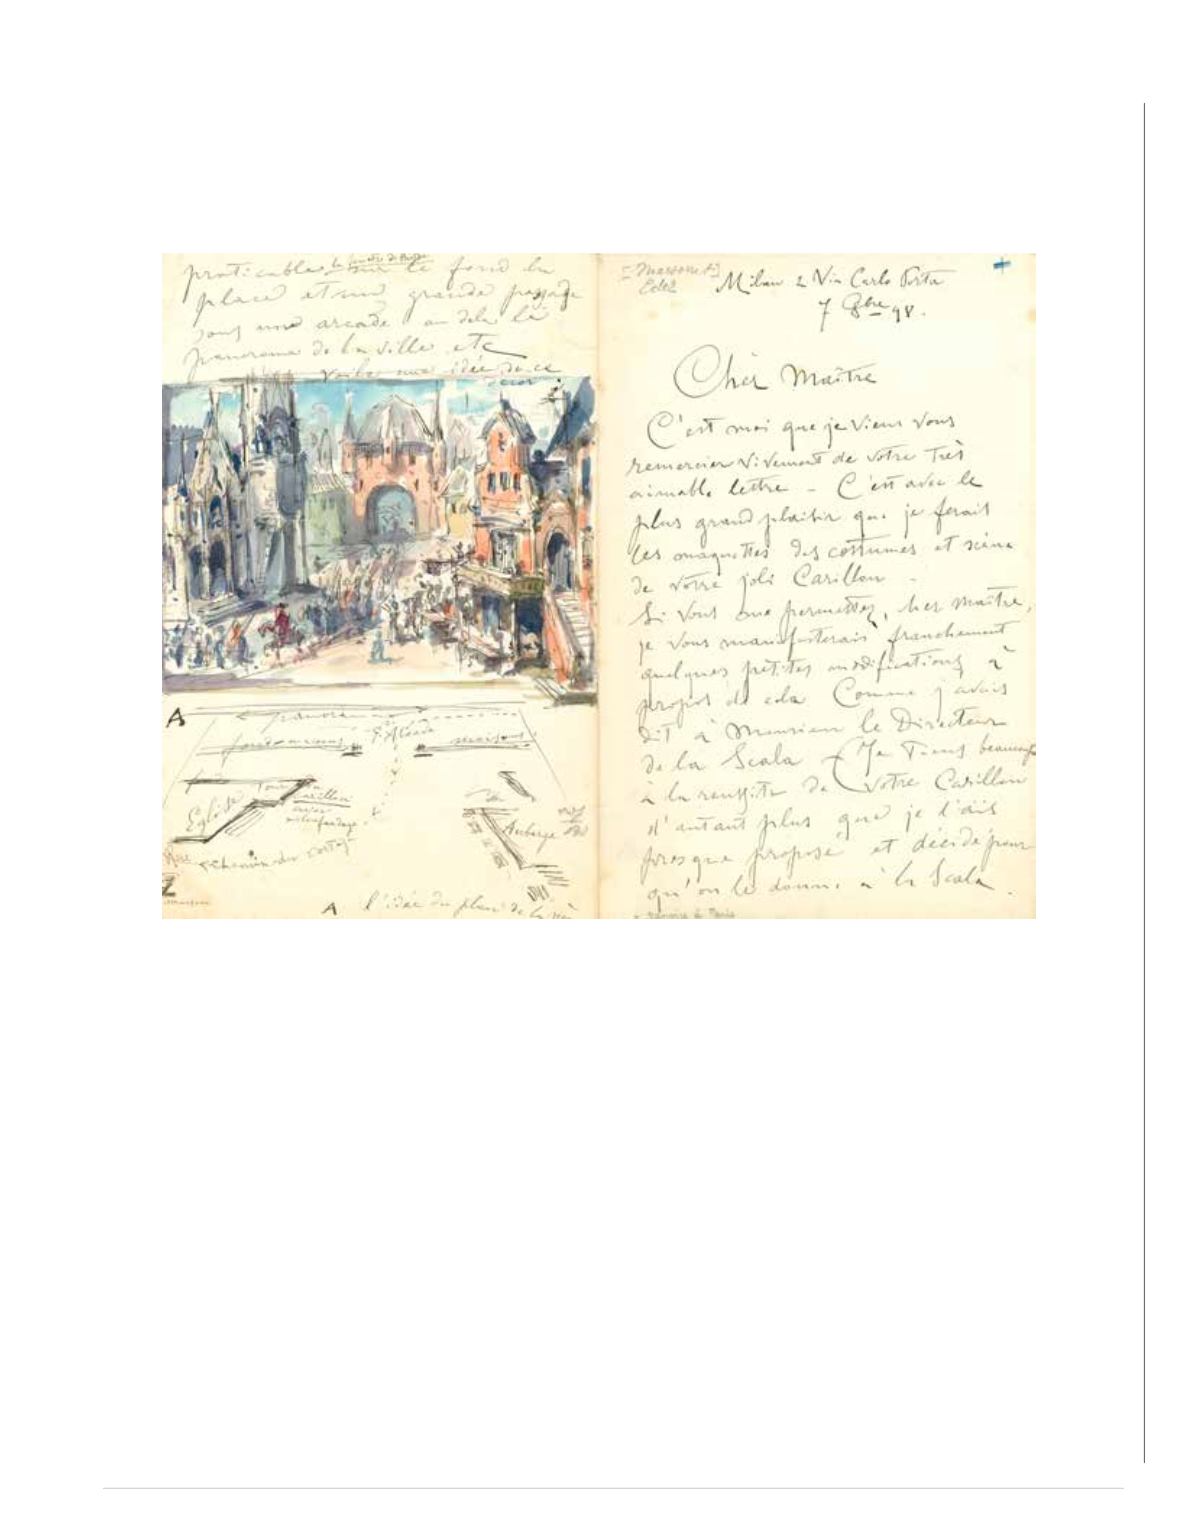 praticables sur le fond la
place et une grande passage
sous une arcade au delà le
panorama de la ville etc
voila une idée de ce
décor
A
panorama
g. Arcade
maisons
Tour du
Carillon
Eglise
Auberge
Chemin du Cortège
A l'idée du plan de la
[Massenet]
Milan 2 Via Carlo Porta
7 8bre 98.
Cher Maître
C'est moi que je viens vous
remercier vivement de votre très
aimable lettre - C'est avec le
plus grand plaisir que je ferais
les maquettes des costumes et scène
de votre joli Carillon -
Si vous me permettez, cher maître,
je vous manifesterais franchement
quelques petites modifications à
propos de cela Comme j'avais
dit à Monsieur le Directeur
de la Scala - (Je Tiens beaucoup
à la reussite de votre Carillon
d'autant plus que je l'ais
presque proposé et décidé pour
qu'on le donne à la Scala.